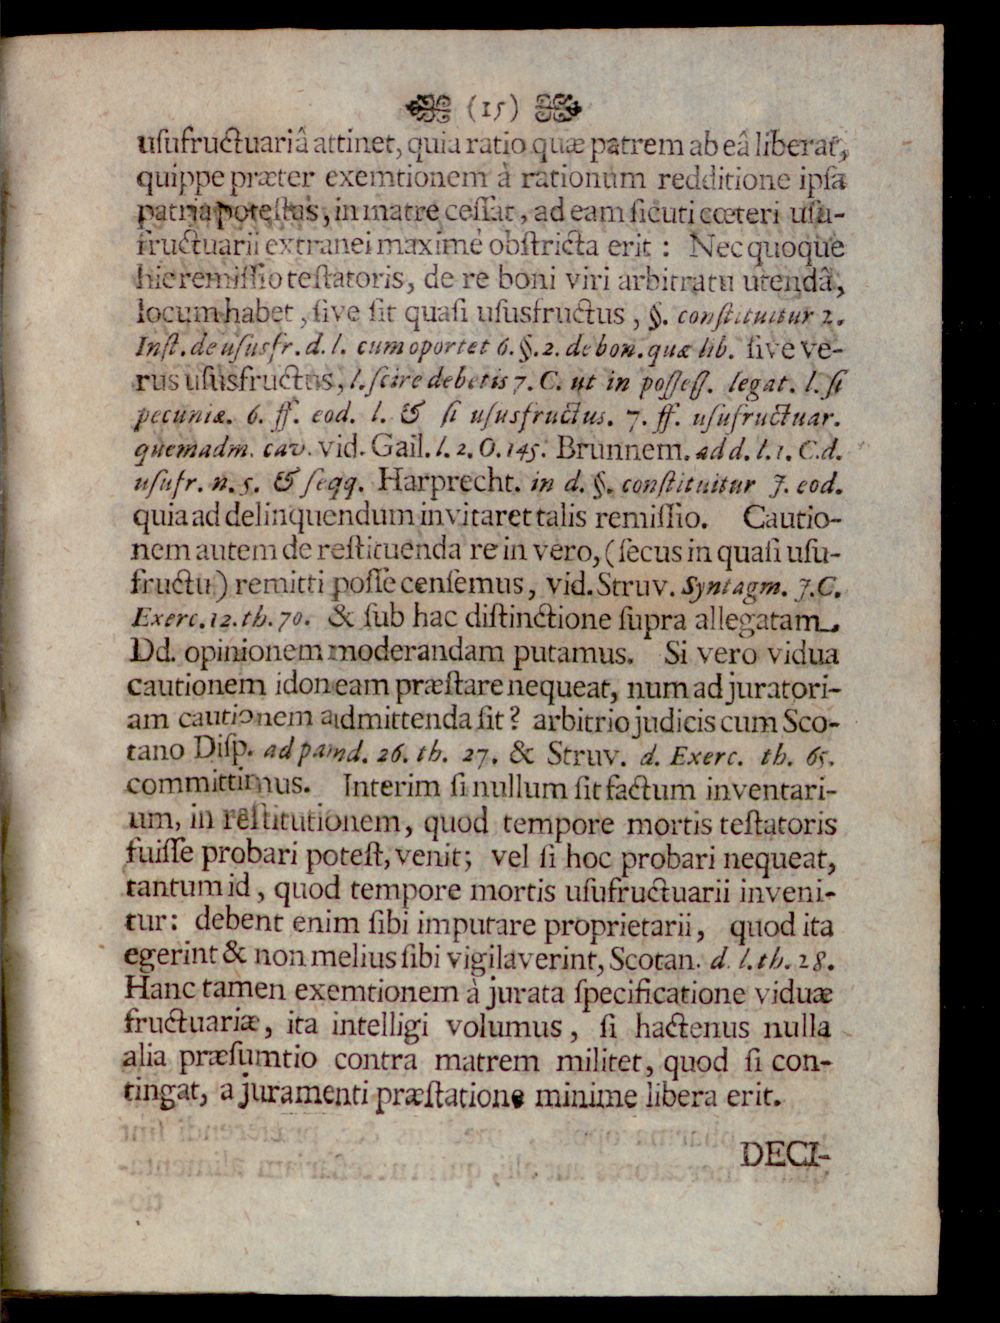 (15)
uſufructuariâ attinet, quia ratio quæ patrem ab eâ liberat,
quippe præter exemtionem à rationum redditione ipſa
patria poteſtas, in matre ceſſat, ad eam ſicuti cœteri uſu-
fructuarii extranei maximè obſtricta erit : Nec quoque
hic remiſſio teſtatoris, de re boni viri arbitratu utendâ,
locum habet, ſive ſit quaſi uſusfructus, §. conſtituitur 2.
Inſt. de uſusfr. d. l. cum oportet 6. §. 2. de bon. quæ lib. ſive ve-
rus uſusfructus, l. ſcire debetis 7. C. ut in poſſeſſ. legat. l. ſi
pecuniæ. 6. ff. eod. l. & ſi uſusfructus. 7. ff. uſufructuar.
quemadm. cav. vid. Gail. l. 2. O. 145. Brunnem. add. l. 1. C. d.
uſufr. n. 5. & ſeqq. Harprecht. in d. §. conſtituitur J. eod.
quia ad delinquendum invitaret talis remiſſio. Cautio-
nem autem de reſtituenda re in vero, (ſecus in quaſi uſu-
fructu) remitti poſſe cenſemus, vid. Struv. Syntagm. J. C.
Exerc. 12. th. 70. & ſub hac diſtinctione ſupra allegatam
Dd. opinionem moderandam putamus. Si vero vidua
cautionem idoneam præſtare nequeat, num ad juratori-
am cautionem admittenda ſit? arbitrio judicis cum Sco-
tano Diſp. ad pand. 26. th. 27. & Struv. d. Exerc. th. 65.
committimus. Interim ſi nullum ſit factum inventari-
um, in reſtitutionem, quod tempore mortis teſtatoris
fuiſſe probari poteſt, venit; vel ſi hoc probari nequeat,
tantum id, quod tempore mortis uſufructuarii inveni-
tur: debent enim ſibi imputare proprietarii, quod ita
egerint & non melius ſibi vigilaverint, Scotan. d. l. th. 28.
Hanc tamen exemtionem à jurata ſpecificatione viduæ
fructuariæ, ita intelligi volumus, ſi hactenus nulla
alia præſumtio contra matrem militet, quod ſi con-
tingat, a juramenti præſtatione minime libera erit.
DECI-